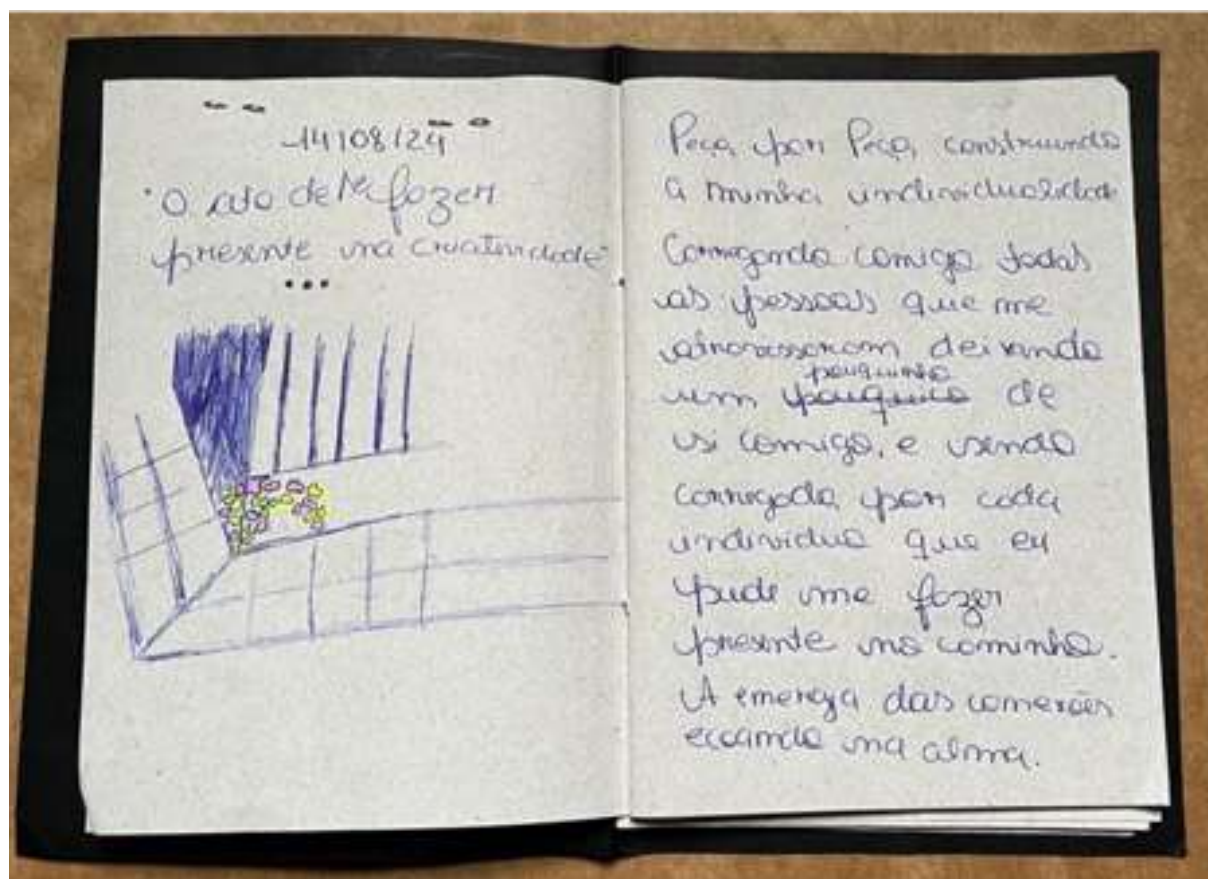 14/08/24
"O ato de refazer
presente na criatividade"
...
Peça por Peça, construindo
a minha individualidade
Carregando comigo todas
as pessoas que me
atravessaram deixando
um pouquinho de
si comigo, e sendo
carregada por cada
individuo que eu
pude me fazer
presente no caminho.
A energia das conexões
ecoando na alma.